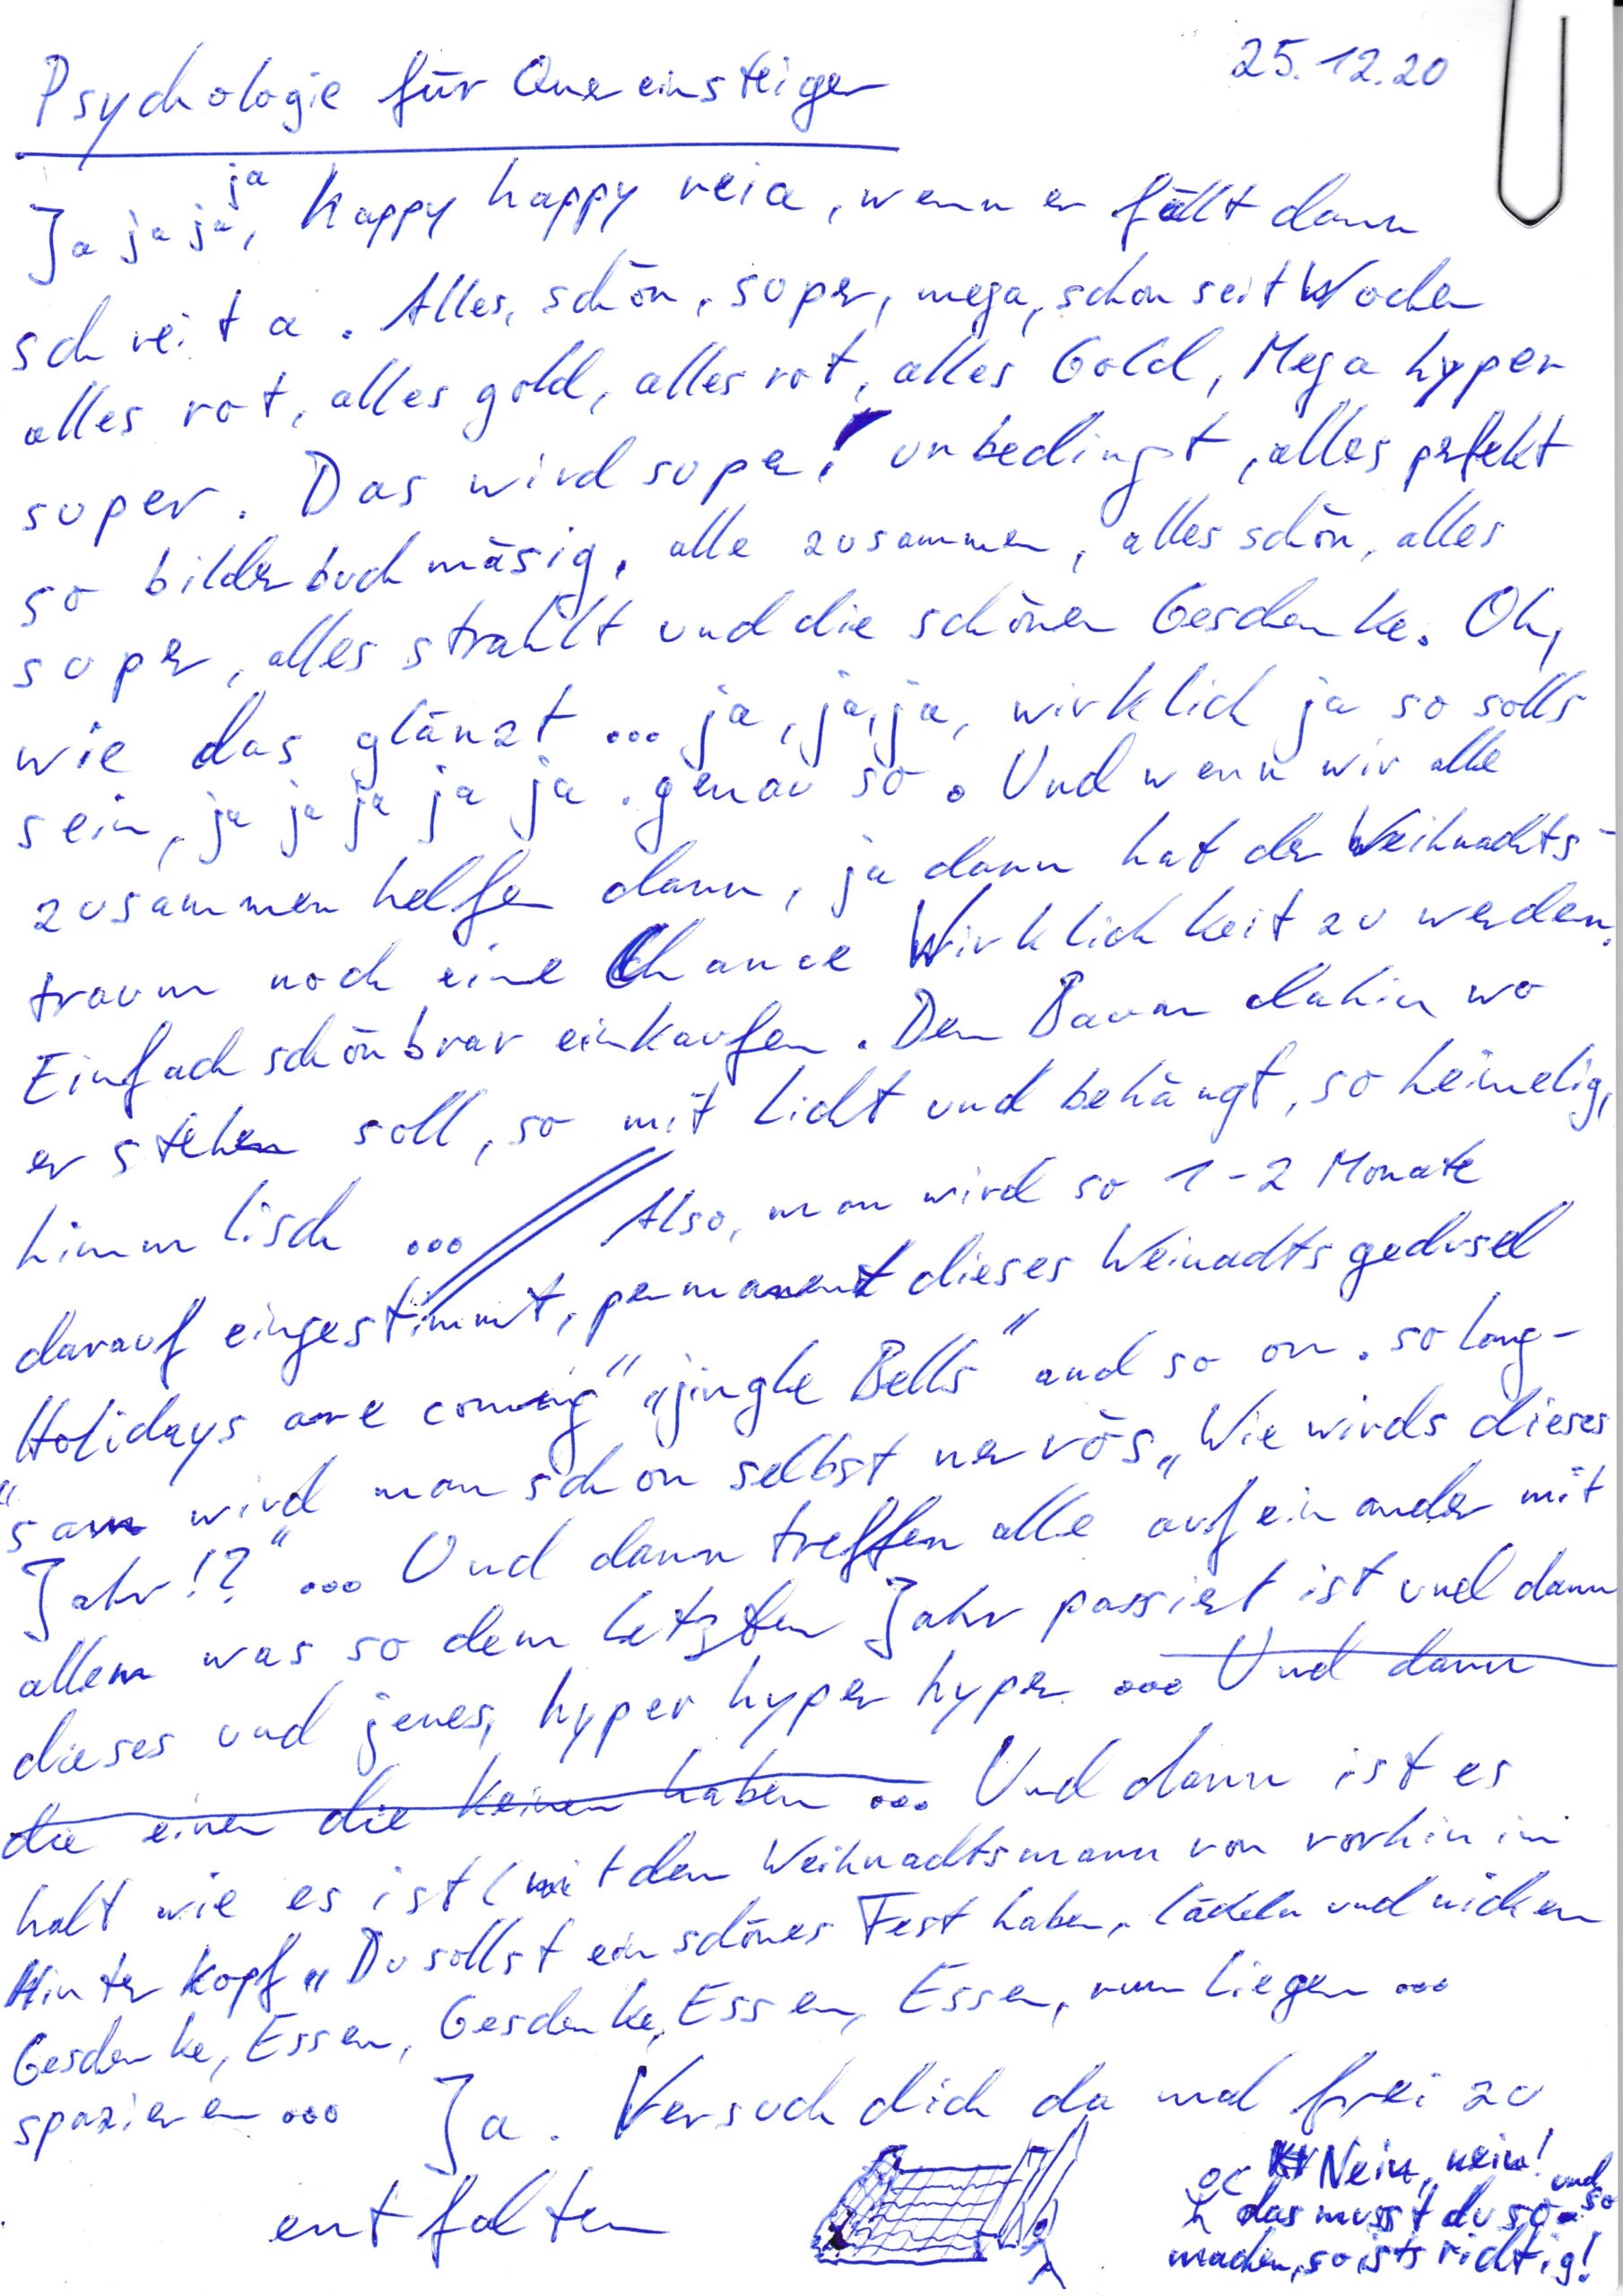 25.12.20
Psychologie für Quereinsteiger
Ja ja ja ja, happy happy reia, wenn er fällt dann
schreit a. Alles, schön, super, mega, schon seit Wochen
alles rot, alles gold, alles rot, alles Gold, Mega hyper
super. Das wird super! unbedingt, alles prfekt
so bilderbuchmäsig, alle zusammen, alles schön, alles
super, alles strahlt und die schönen Geschenke. Oh,
wie das glänzt ... ja, ja, ja, wirklich ja so solls
sein, ja ja ja ja ja. genau so. Und wenn wir alle
zusammen helfen dann, ja dann hat der Weihnachts-
traum noch eine Chance Wirklichkeit zu werden.
Einfach schön brav einkaufen. Den Baum dahin wo
er stehen soll, so mit Licht und behängt, so heimelig,
himmlisch ... // Also, man wird so 1-2 Monate
darauf eingestimmt, permanent dieses Weinachtsgedusel
"Holidays are coming" "jingle Bells" and so on. so lang-
sam wird man schon selbst nervös "Wie wirds dieses
Jahr!?" ... Und dann treffen alle aufeinander mit
allem was so dem letzten Jahr passiert ist und dann
dieses und jenes, hyper hyper hyper ... Und dann
die einen die keinen haben ... Und dann ist es
halt wie es ist (mit dem Weihnachtsmann von vorhin im
Hinterkopf "Du sollst ein schönes Fest haben, lächeln und nicken
Geschenke, Essen, Geschenke, Essen, Essen, rum liegen ...
spazieren ... Ja. Versuch dich da mal frei zu
entfalten
Nein, nein!
das musst du so und so
machen, so ists richtig!